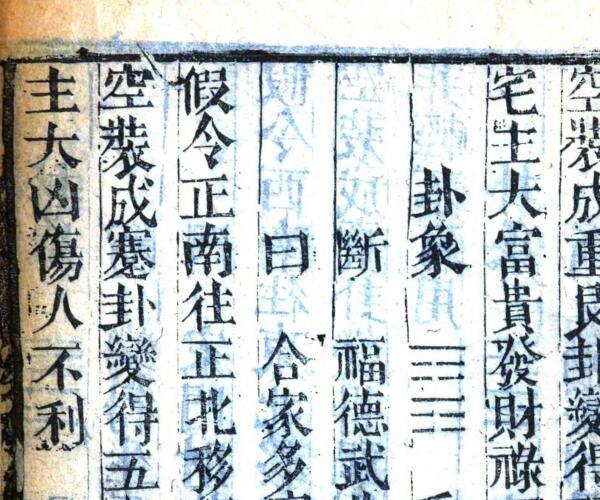 空裝成重艮卦變得
宅主大富貴發財祿
卦象
斷 福德武
曰 合家多
假令正南往正北移
空裝成蹇卦變得五
主大凶傷人不利